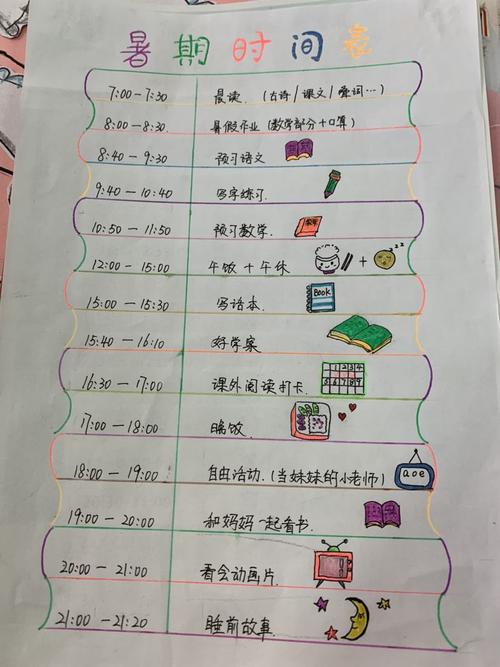 暑期时间表
7:00-7:30 晨读.（古诗/课文/单词…）
8:00-8:30. 暑假作业（数学部分+口算）
8:40-9:30 预习语文
9:40-10:40 写字练习.
10:50-11:50 预习数学.
数学
12:00-15:00 午饭+午休 + zzz
15:00-15:30 写话本.
BOOK
15:40-16:10 好学案
16:30-17:00 课外阅读打卡
1 2 3 4
5 6 7 8 9
17:00-18:00 晚饭.
18:00-19:00 自由活动.（当妹妹的小老师）
aoe
19:00-20:00 和妈妈一起看书.
20:00-21:00 看会动画片.
21:00-21:20 睡前故事.